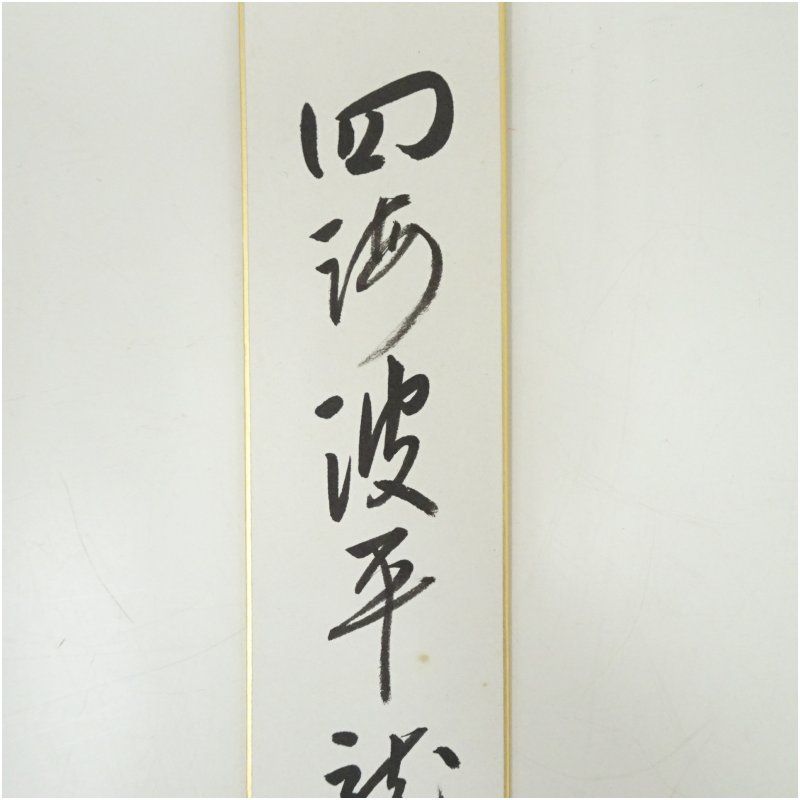 四海波平龍